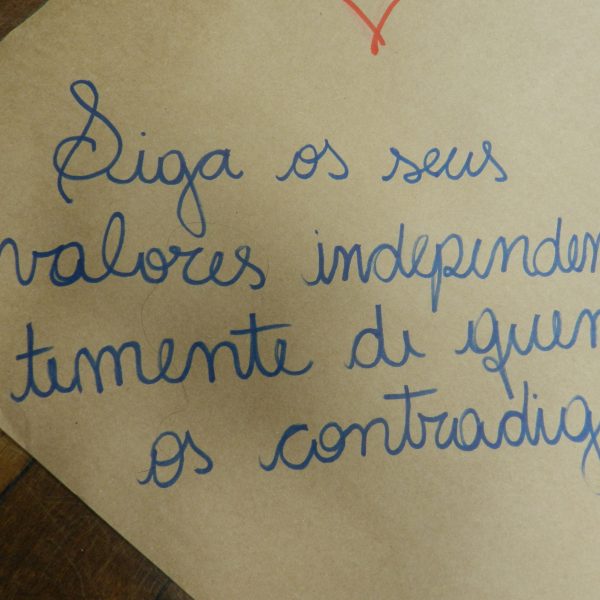 Siga os seus
valores independen
temente de quem
os contradiga